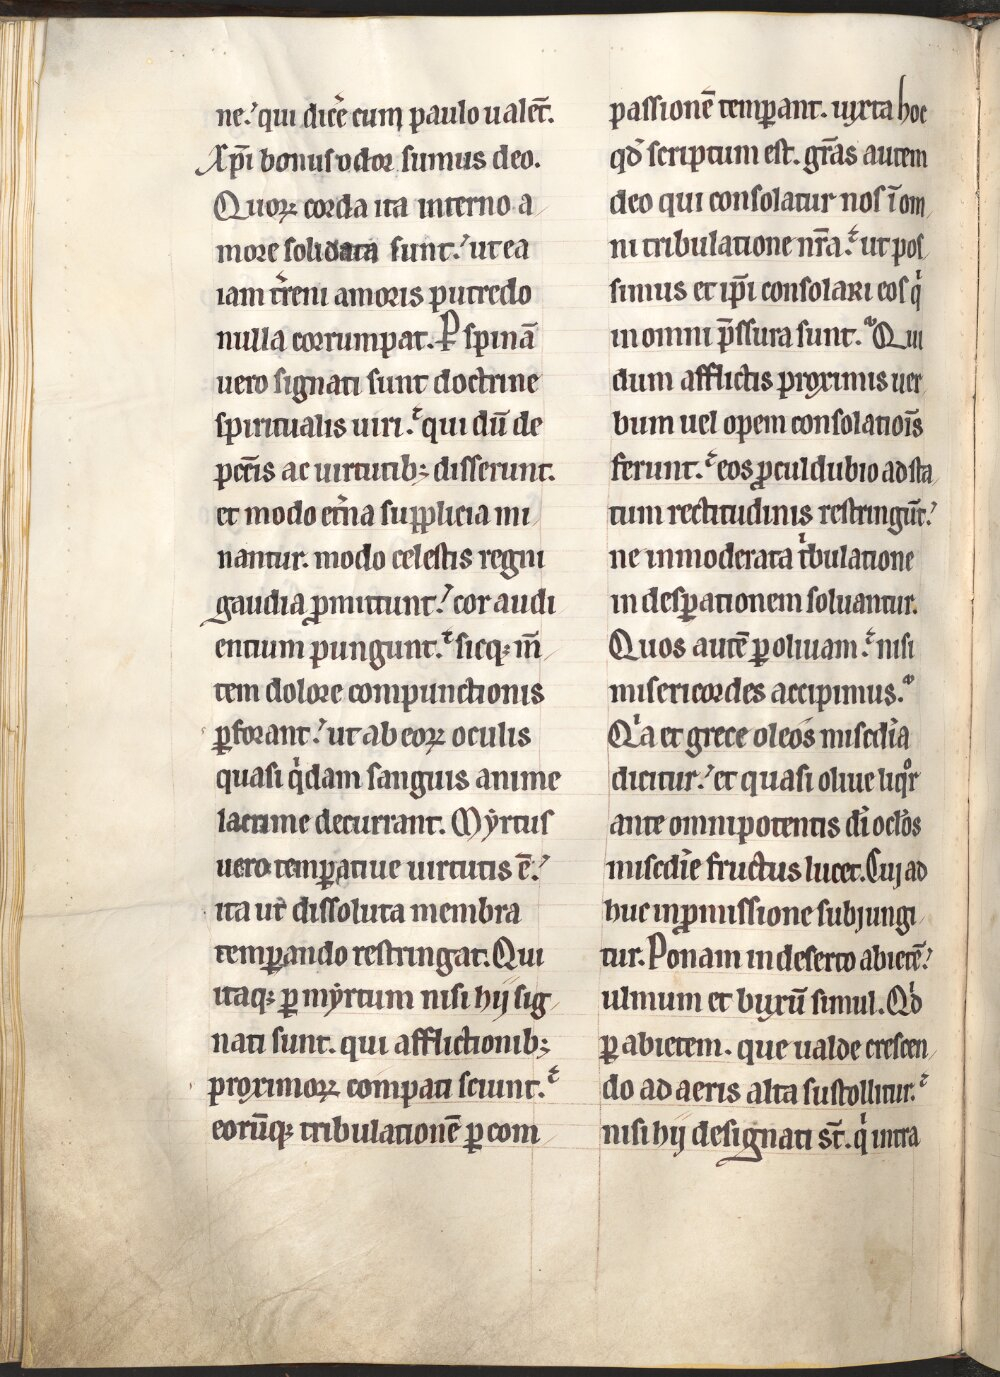 ne. qui dicẽ cum paulo ualet̃.
Xpĩ bonus odor sumus deo.
Quoꝝ corda ita interno a
more solidata sunt. ut ea
iam tẽreni amoris putredo
nulla corrumpat. P spinã
uero signati sunt doctrine
spiritualis uiri. qui dũ de
pcc̃is ac uirtutibꝫ disserunt.
et modo et̃na supplicia mi
nantur. modo celestis regni
gaudia ꝓmittunt. cor audi
entium pungunt. sicqꝫ m̃
tem dolore compunctionis
ꝑforant. ut ab eoꝝ oculis
quasi qͥdam sanguis anime
lacrime decurrant. Myrtus
uero temꝑatiue uirtutis ẽ.
ita ut dissoluta membra
temꝑando restringat. Qui
itaqꝫ ꝑ myrtum nisi hij sig
nati sunt. qui afflictionibꝫ
proximoꝝ compati sciunt.
eorũqꝫ tribulationẽ ꝑ com
passionẽ temꝑant. iuxta hoc
qđ scriptum est. gr̃as autem
deo qui consolatur nos ĩ om
ni tribulatione nr̃a. ut pos
simus et ip̃i consolari eos qͥ
in omni p̃ssura sunt. Qui
dum afflictis proximis uer
bum uel opem consolatiõis
ferunt. eos ꝓculdubio ad sta
tum rectitudinis restringũt.
ne inmoderata tͥbulatione
in desꝑationem soluantur.
Quos autẽ ꝑ oliuam. nisi
misericordes accipimus.
Qͥa et grece oleos misc̃dia
dicitur. et quasi oliue liqͦr
ante omnipotentis dĩ oclõs
misc̃die fructus lucet. Cuj ad
huc in ꝓmissione subjungi
tur. Ponam in deserto abietẽ.
ulmum et buxũ simul. Qͥd
ꝑ abietem. que ualde crescen
do ad aeris alta sustollitur.
nisi hij designati st̃. qͥ intra